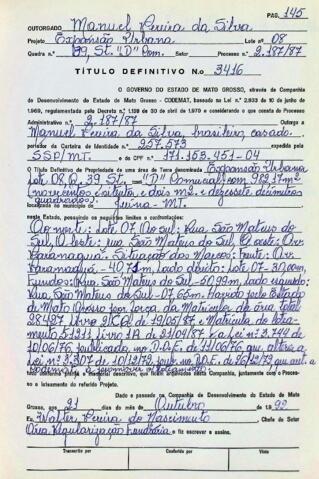 PAG. 145
OUTORGADO Manuel Pereira da Silva
Projeto Expansão Urbana Lote n.º 08
Quadra n.º 39, St. "D" Com. Setor Processo n.º 2.187/87
TÍTULO DEFINITIVO N.o 3416
O GOVERNO DO ESTADO DE MATO GROSSO, através da Companhia
de Desenvolvimento do Estado de Mato Grosso - CODEMAT, baseado na Lei n.º 2.933 de 10 de junho
de 1969, regulamentada pelo Decreto n.º 1.138 de 30 de abril de 1970 e considerando o que consta do Processo
Administrativo n.º 2.187/87 Outorga a
Manuel Pereira da Silva, brasileiro, casado.
portador da Carteira de Identidade n.º 257.573 expedida pela
SSP/MT. e do CPF n.º 171.153.451-04
O Título Definitivo de Propriedade de uma área de Terra denominada Expansão Urbana
Lote 08 Q. 39 St. "D" Comercial com 982,17m²
(novecentos e oitenta e dois m² e dezessete decímetros
quadrados). localizada no município de Juína-MT.
neste Estado, possuindo os seguintes limites e confrontações:
Ao norte: Lote 07 Ao sul: Rua São Mateus do
Sul, A leste: rua São Mateus do Sul, A oeste: Av.
Paranaguá. Situação dos Marcos: frente: Av.
Paranaguá - 40,71m, lado direito: Lote 07- 30,00m,
Fundos: Rua São Mateus do Sul - 50,99m, lado esquerdo:
Rua São Mateus do Sul - 07,65m. Havido pelo Estado
de Mato Grosso por força da Matrícula da área total
28.427 livro 2 de 19/05/87 e Matrícula do lotea
mento 51.211 livro 1A de 21/09/87 e a Lei nº 3.744 de
10/06/76 publicada no D.O.E. de 11/06/76 que altera a
Lei nº 3.307 de 18/12/72 publ. no D.O.E. de 26/12/72 que aut. a
Codemat a promover o loteamento
tudo conforme planta e memorial descritivo, que fazem arquivados na Companhia, juntamente com o Processo e loteamento do referido Projeto.
Dado e passado na Companhia de Desenvolvimento do Estado de Mato
Grosso, aos 21 dias do mês de Outubro de 19 92
Eu, Walter Pereira do Nascimento Chefe do Setor
Área Regularização Fundiária o fiz escrever e assino.
Transcrito por
Conferido por
Visto